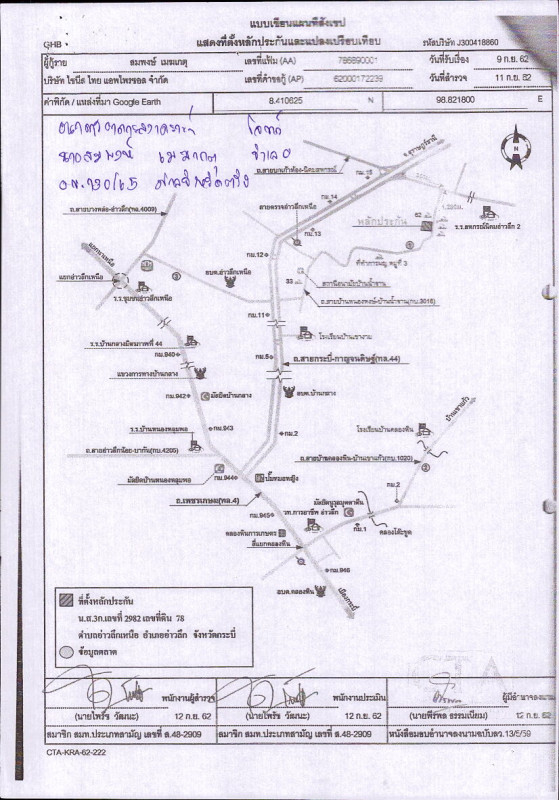 แบบเขียนแผนที่สังเขป
GHB
แสดงที่ตั้งหลักประกันและแปลงเปรียบเทียบ
รหัสบริษัท J300418860
ผู้กู้ราย สมพงษ์ เมฆเกตุ เลขที่แฟ้ม (AA) 786890001 วันที่รับเรื่อง 9 ก.ย. 62
บริษัท ไซมีส ไทย แอพไพรซอล จำกัด เลขที่คำขอกู้ (AP) 62000172239 วันที่สำรวจ 11 ก.ย. 62
ค่าพิกัด / แหล่งที่มา Google Earth 8.410625 N 98.821800 E
โจทก์
จำเลย
N
จ.สุราษฎร์ธานี
กม.15
กม.14
ถ.สายบางพลอ-อ่าวลึก(ทล.4009)
สายตรวจอ่าวลึกเหนือ
กม.13
หลักประกัน
62
ร.ร.สหกรณ์นิคมอ่าวลึก 2
1
ที่ทำการหมู่ หมู่ที่ 3
กม.12
แยกอ่าวลึกเหนือ
3
อบต.อ่าวลึกเหนือ
33
สถานีอนามัยบ้านน้ำจาน
ถ.สายบ้านหนองหงษ์-บ้านน้ำจาน(กบ.3016)
ร.ร.ชุมชนอ่าวลึกเหนือ
กม.11
โรงเรียนบ้านเขางาม
ร.ร.บ้านกลางมิตรภาพที่ 44
กม.940
กม.5
ถ.สายกระบี่-กาญจนดิษฐ์(ทล.44)
แขวงการทางบ้านกลาง
กม.942
มัสยิดบ้านกลาง
อบต.บ้านกลาง
บ้านเขาแก้ว
ร.ร.บ้านหนองหลุมพอ
กม.943
กม.2
โรงเรียนบ้านคลองหิน
ถ.สายอ่าวลึกน้อย-บากัน(กบ.4205)
ถ.สายบ้านคลองหิน-บ้านเขาแก้ว(กบ.1020)
2
มัสยิดบ้านหนองหลุมพอ
กม.944
ปั๊มหมอหญิง
ถ.เพชรเกษม(ทล.4)
กม.2
วท.การอาชีพ อ่าวลึก
กม.945
กม.1
คลองโต๊ะขุด
คลองหินการเกษตร
สี่แยกคลองหิน
กม.946
อบต.คลองหิน
เมืองกระบี่
ที่ตั้งหลักประกัน
น.ส.3ก.เลขที่ 2982 เลขที่ดิน 78
ตำบลอ่าวลึกเหนือ อำเภออ่าวลึก จังหวัดกระบี่
ข้อมูลตลาด
พนักงานผู้สำรวจ พนักงานประเมิน ผู้มีอำนาจลงนาม
(นายไพรัช วัฒนะ) 12 ก.ย. 62 (นายไพรัช วัฒนะ) 12 ก.ย. 62 (นายพีรพล ธรรมเนียม) 12 ก.ย. 62
สมาชิก สมท.ประเภทสามัญ เลขที่ ส.48-2909 สมาชิก สมท.ประเภทสามัญ เลขที่ ส.48-2909 หนังสือมอบอำนาจลงนามฉบับลว.13/5/59
CTA-KRA-62-222